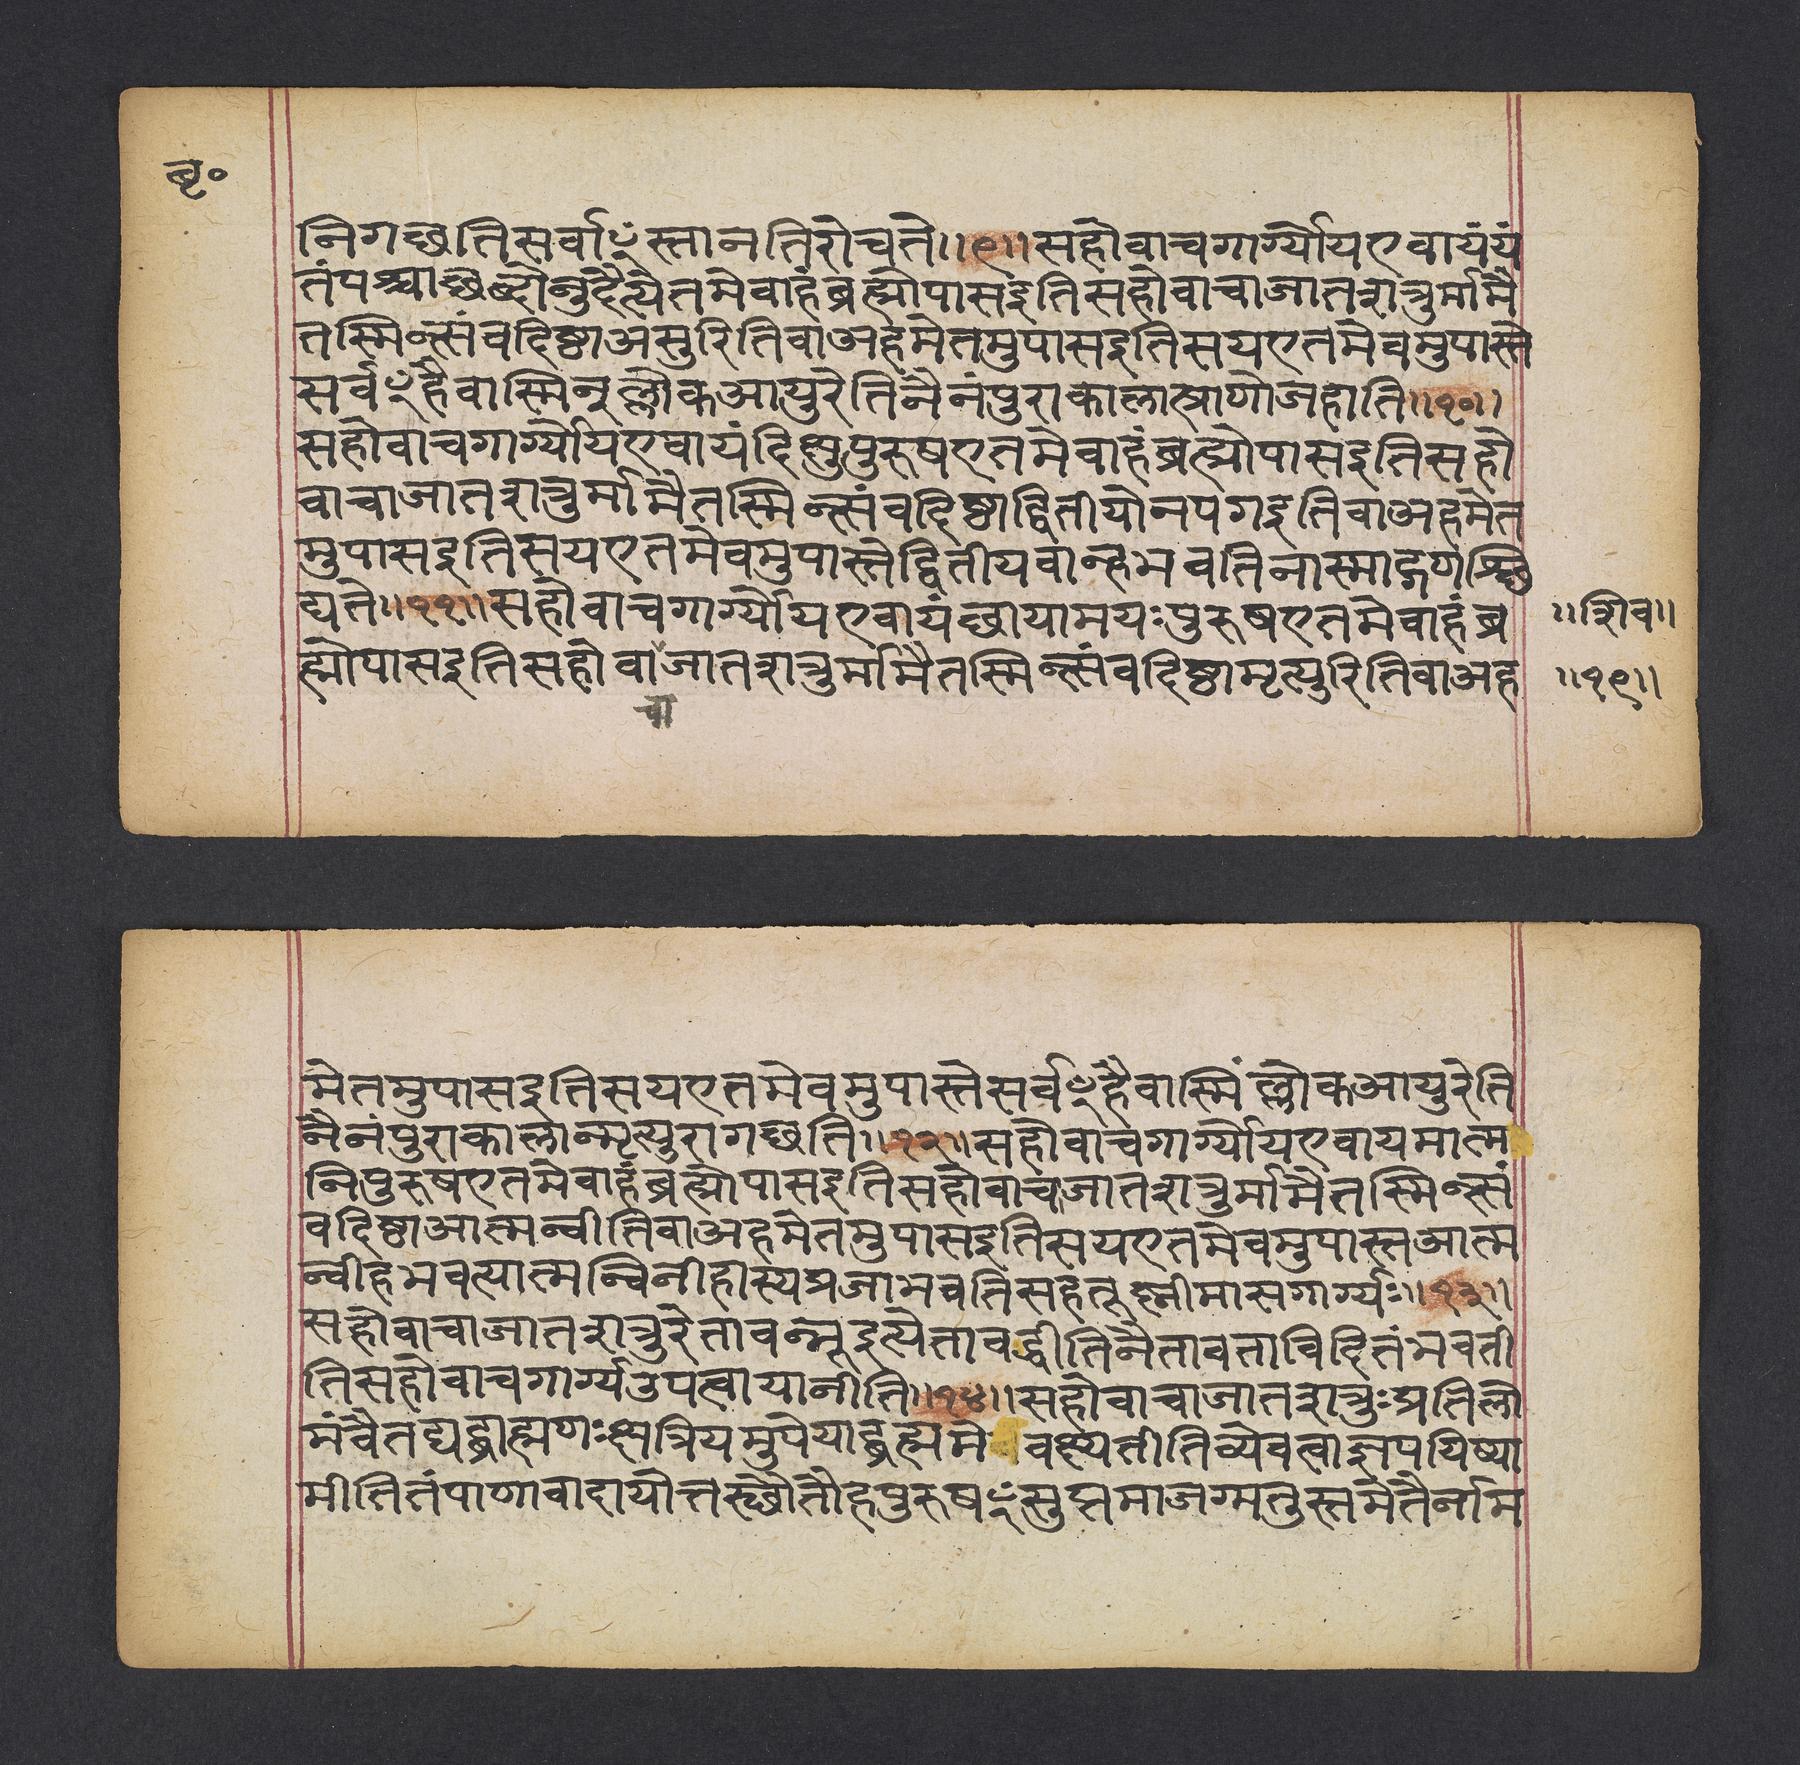 बृ०
निगछतिसर्वाꣳस्तानतिरोचते॥९॥सहोवाचगार्ग्योयएवायंयं
तंपश्चाछब्दोनूदैत्येतमेवाहंब्रह्मोपासइतिसहोवाचाजातशत्रुर्मामै
तस्मिन्त्संवदिष्ठाअसुरितिवाअहमेतमुपासइतिसयएतमेवमुपास्ते
सर्वꣳहैवास्मिन्ल्लोकआयुरेतिनैनंपुराकालात्प्राणोजहाति॥१०॥
सहोवाचगार्ग्योयएवायंदिक्षुपुरूषएतमेवाहंब्रह्मोपासइतिसहो
वाचाजातशत्रुर्मामैतस्मिन्त्संवदिष्ठाद्वितीयोनपगइतिवाअहमेत
मुपासइतिसयएतमेवमुपास्तेद्वितीयवान्हभवतिनास्माद्गणश्छि
द्यते॥११॥सहोवाचगार्ग्योयएवायंछायामयःपुरूषएतमेवाहंब्र
॥शिव॥
ह्मोपासइतिसहोवाजातशत्रुर्मामैतस्मिन्त्संवदिष्ठामृत्युरितिवाअह
॥१९॥
चा
मेतमुपासइतिसयएतमेवमुपास्तेसर्वꣳहैवास्मिंल्लोकआयुरेति
नैनंपुराकालान्मृत्युरागछति॥१२॥सहोवाचगार्ग्योयएवायमात्म
निपुरूषएतमेवाहंब्रह्मोपासइतिसहोवाचजातशत्रुर्मामैतस्मिन्त्सं
वदिष्ठाआत्मन्वीतिवाअहमेतमुपासइतिसयएतमेवमुपास्तआत्म
न्वीहभवत्यात्मन्विनीहास्यप्रजाभवतिसहतूष्नीमासगार्ग्यः॥१३॥
सहोवाचाजातशत्रुरेतावन्नूइत्येतावद्धीतिनैतावताविदितंभवती
तिसहोवाचगार्ग्यउपत्वायानीति॥१४॥सहोवाचाजातशत्रुःप्रतिलो
मंवैतद्यद्ब्राह्मणःक्षत्रियमुपेयाद्ब्रह्ममे वक्ष्यतीतिव्येवत्वाज्ञपयिष्या
मीतितंपाणावादायोत्तस्छौतौहपुरूषꣳसुप्तमाजग्मतुस्तमेतैर्नाम